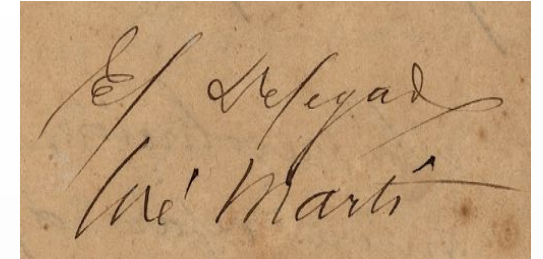 El Delegado
José Martí